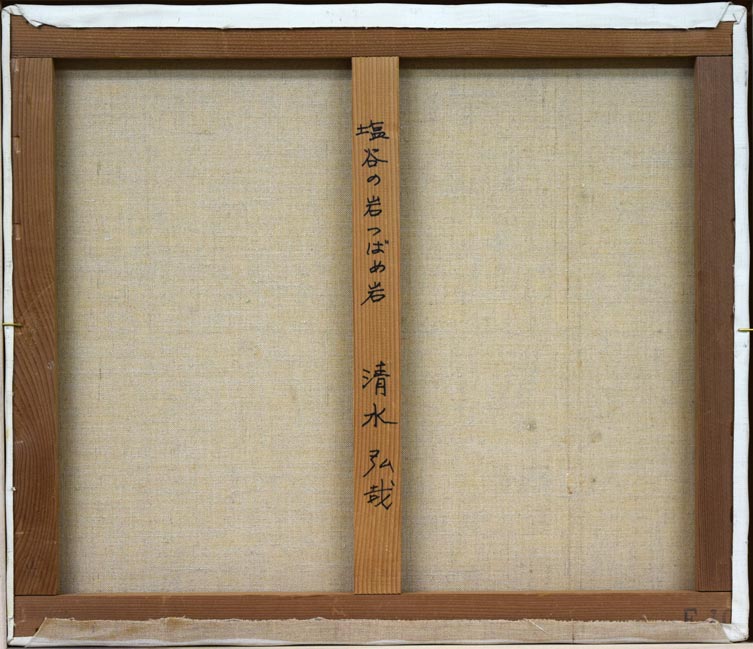 塩谷の岩つばめ岩 清水 弘哉